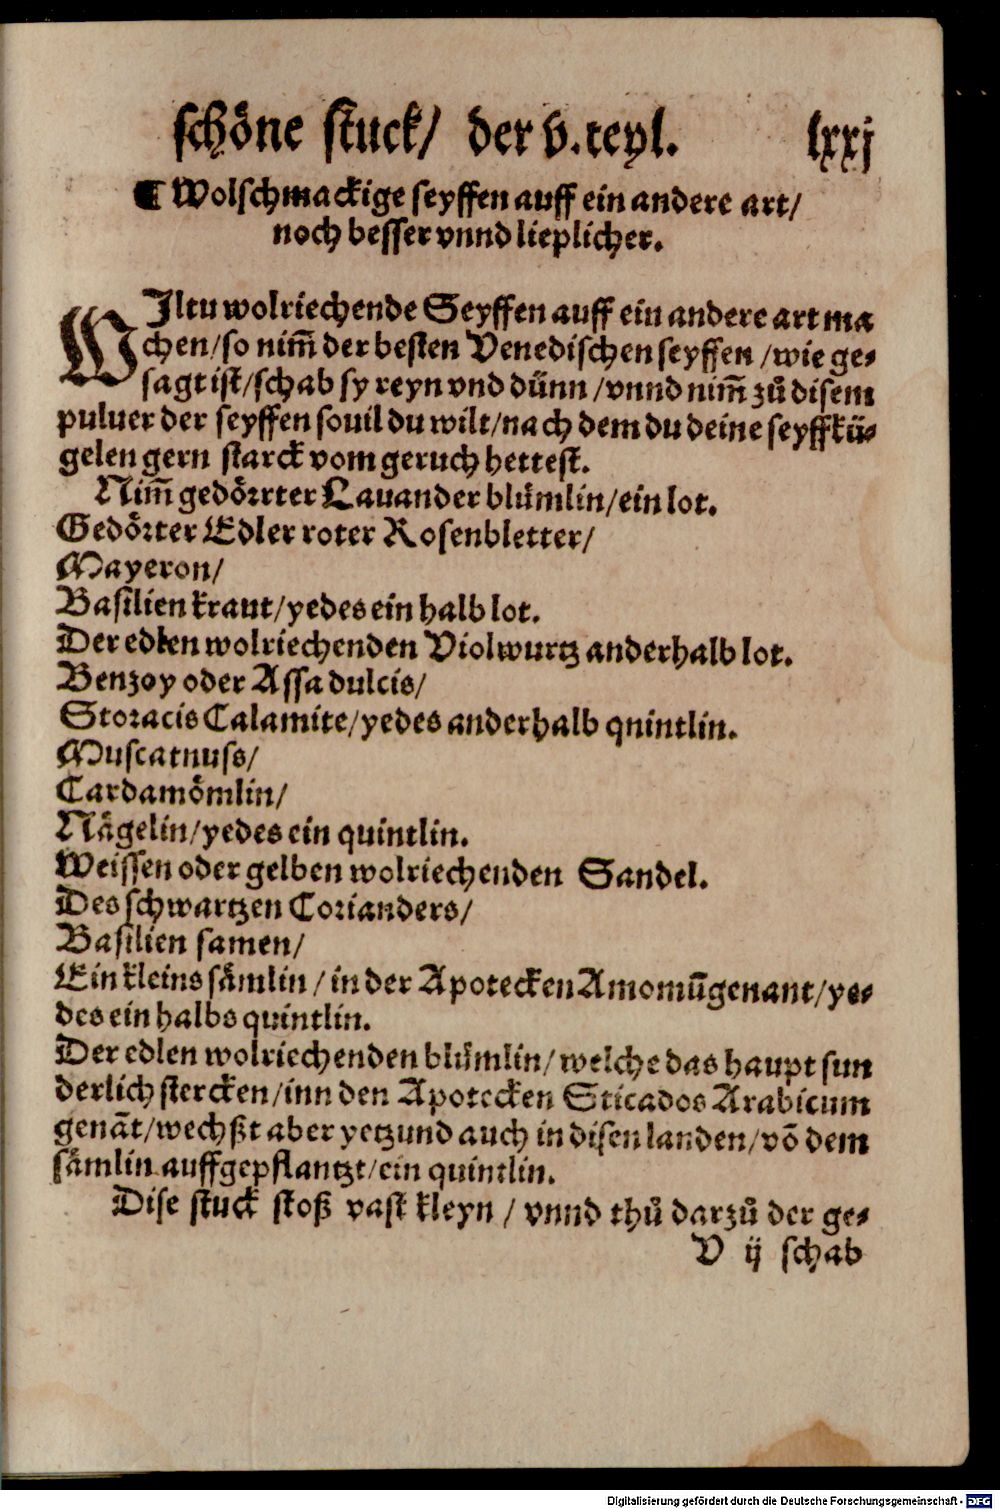 schoͤne stuck/ der v. teyl. lxxj
¶ Wolschmackige seyffen auff ein andere art/
noch besser vnnd lieplicher.
WIltu wolriechende Seyffen auff ein andere art ma
chen/so nim̄ der besten Venedischen seyffen/wie ge⸗
sagt ist/schab sy reyn vnd duͤnn/vnnd nim̄ zuͦ disem
puluer der seyffen souil du wilt/nach dem du deine seyffkuͤ⸗
gelen gern starck vom geruch hettest.
Nim̄ gedoͤrrter Lauander bluͤmlin/ein lot.
Gedoͤrter Edler roter Rosenbletter/
Mayeron/
Basilien kraut/yedes ein halb lot.
Der edlen wolriechenden Violwurtz anderhalb lot.
Benzoy oder Assa dulcis/
Storacis Calamite/yedes anderhalb quintlin.
Muscatnuss/
Cardamoͤmlin/
Naͤgelin/yedes ein quintlin.
Weissen oder gelben wolriechenden Sandel.
Des schwartzen Corianders/
Basilien samen/
Ein kleins saͤmlin/in der Apotecken Amomū genant/ye⸗
des ein halbs quintlin.
Der edlen wolriechenden bluͤmlin/welche das haupt sun
derlich stercken/inn den Apotecken Sticados Arabicum
genāt/wechßt aber yetzund auch in disen landen/vō dem
saͤmlin auffgepflantzt/ein quintlin.
Dise stuck stoß vast kleyn/vnnd thuͦ darzuͦ der ge⸗
V ij schab
Digitalisierung gefördert durch die Deutsche Forschungsgemeinschaft - DFG